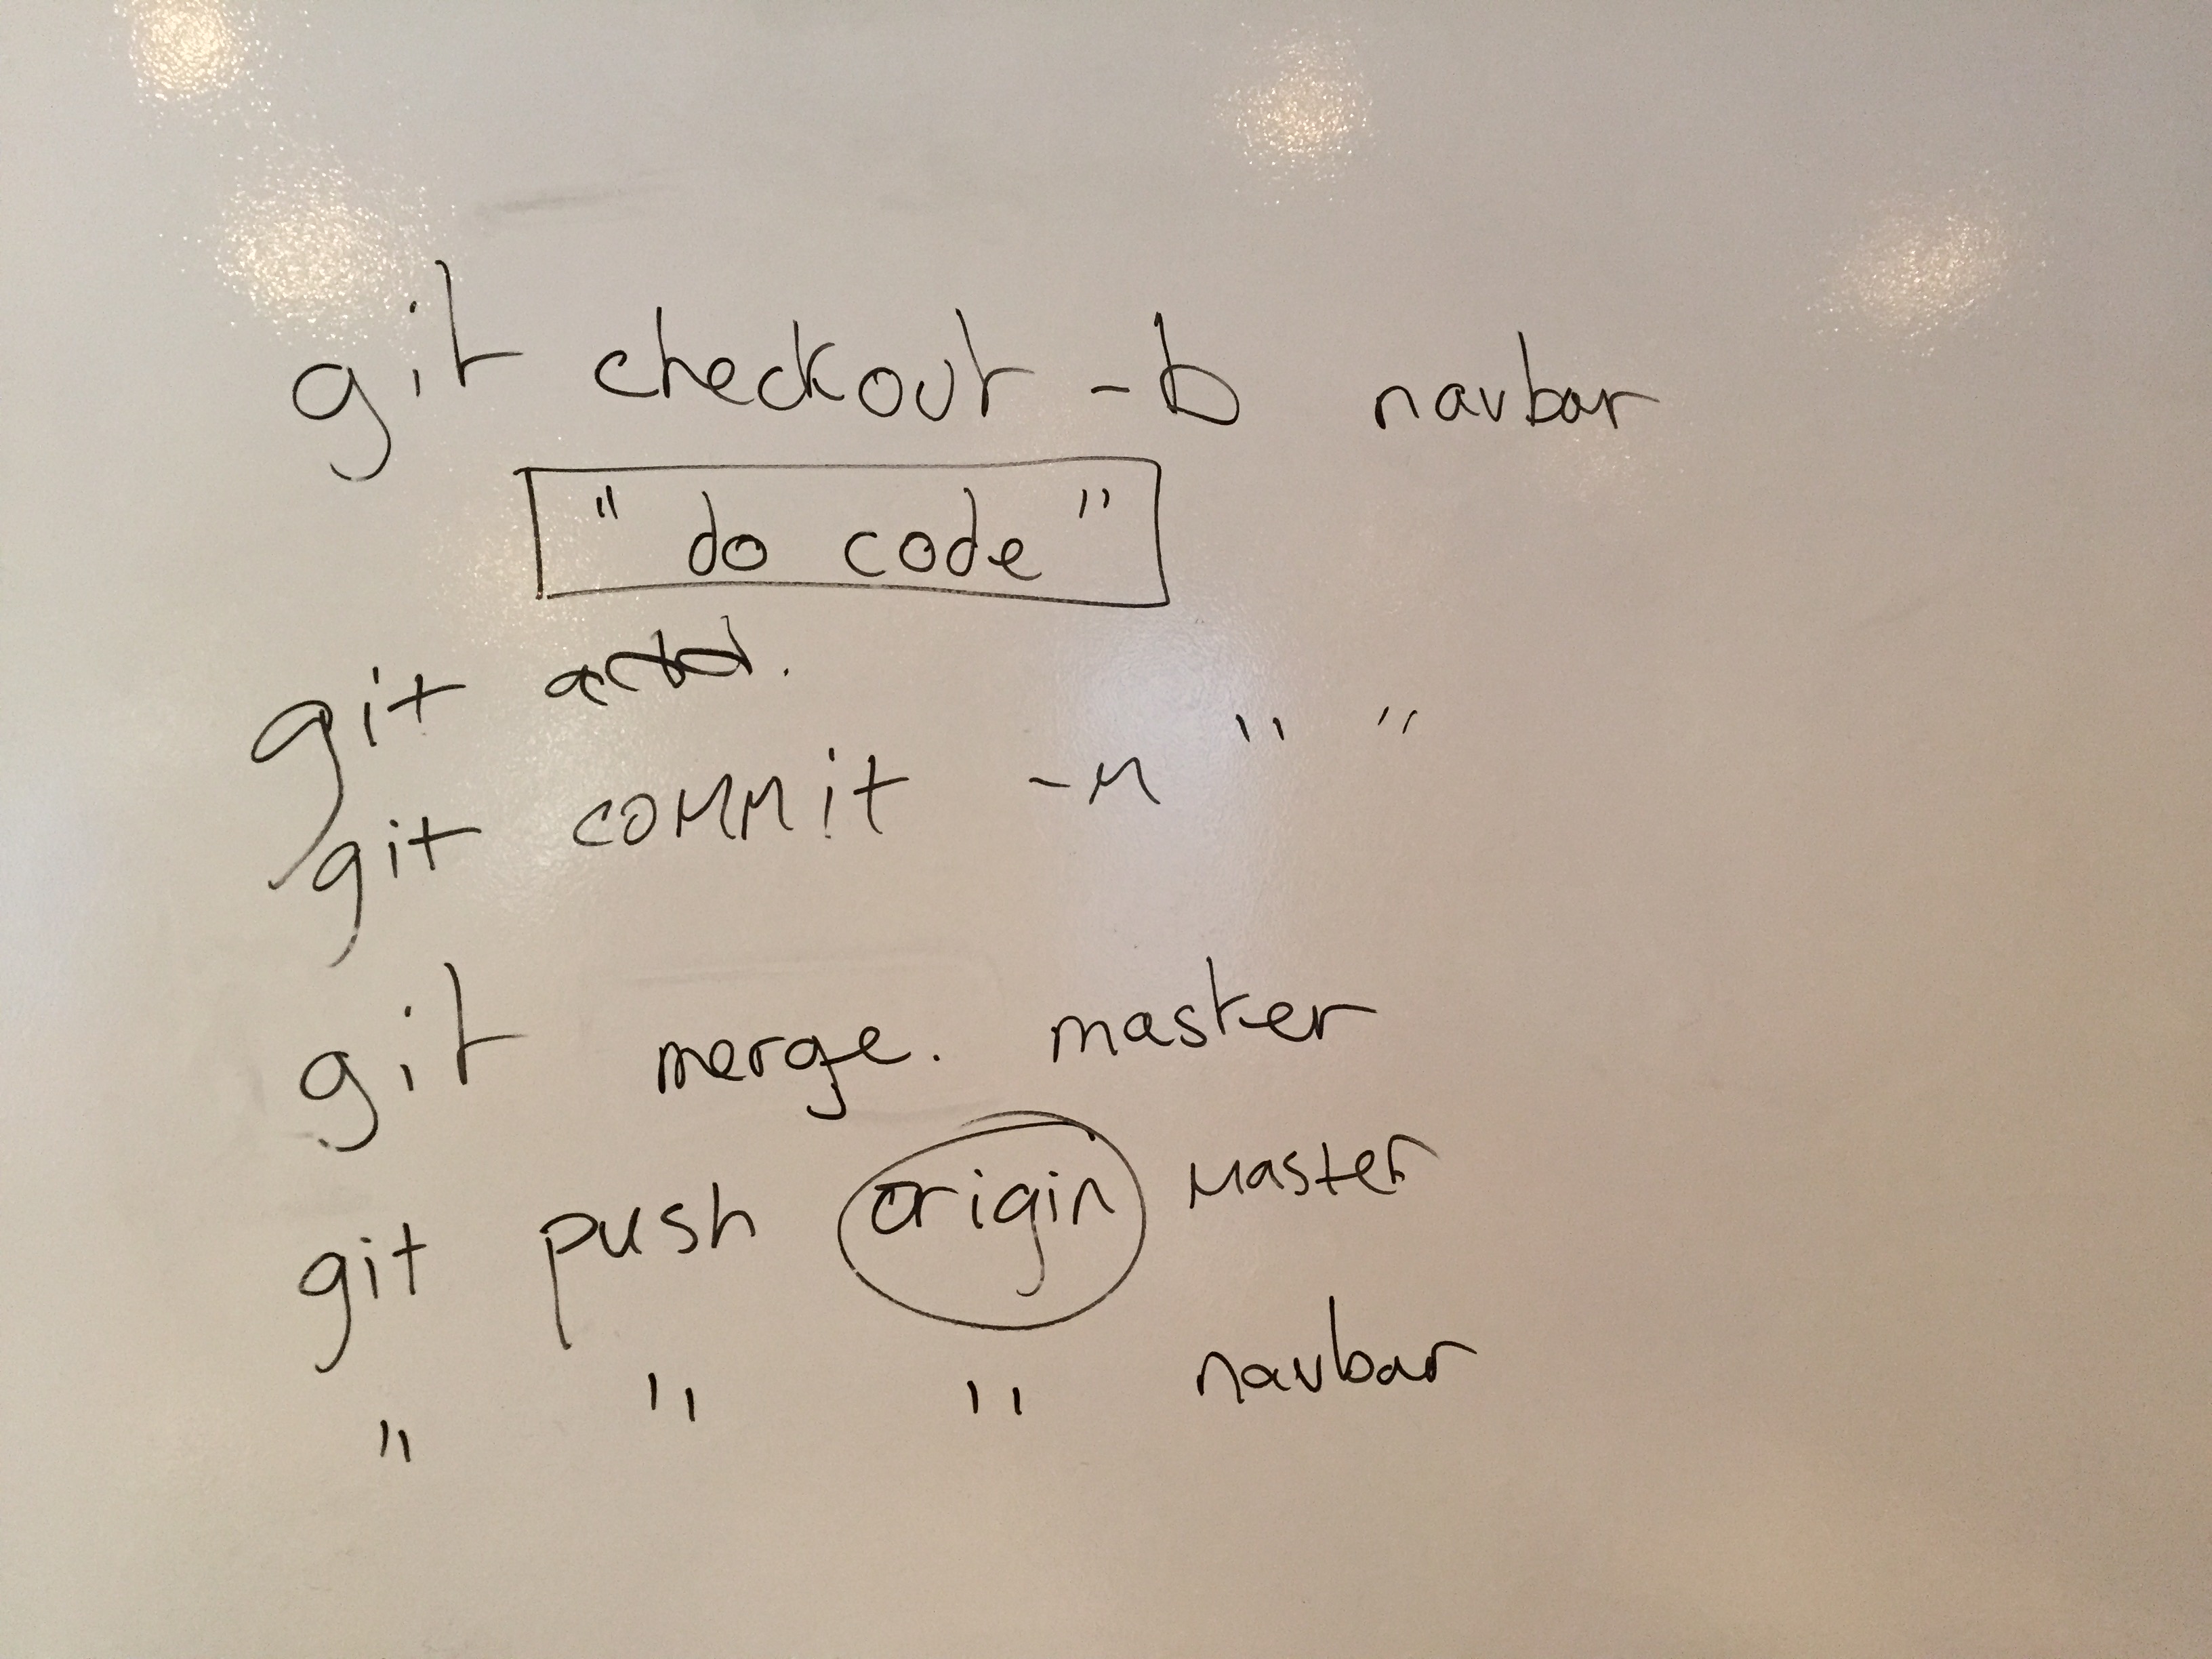 git checkout -b navbar
" do code "
git add .
git commit -m " "
git merge. master
git push origin master
" " " navbar